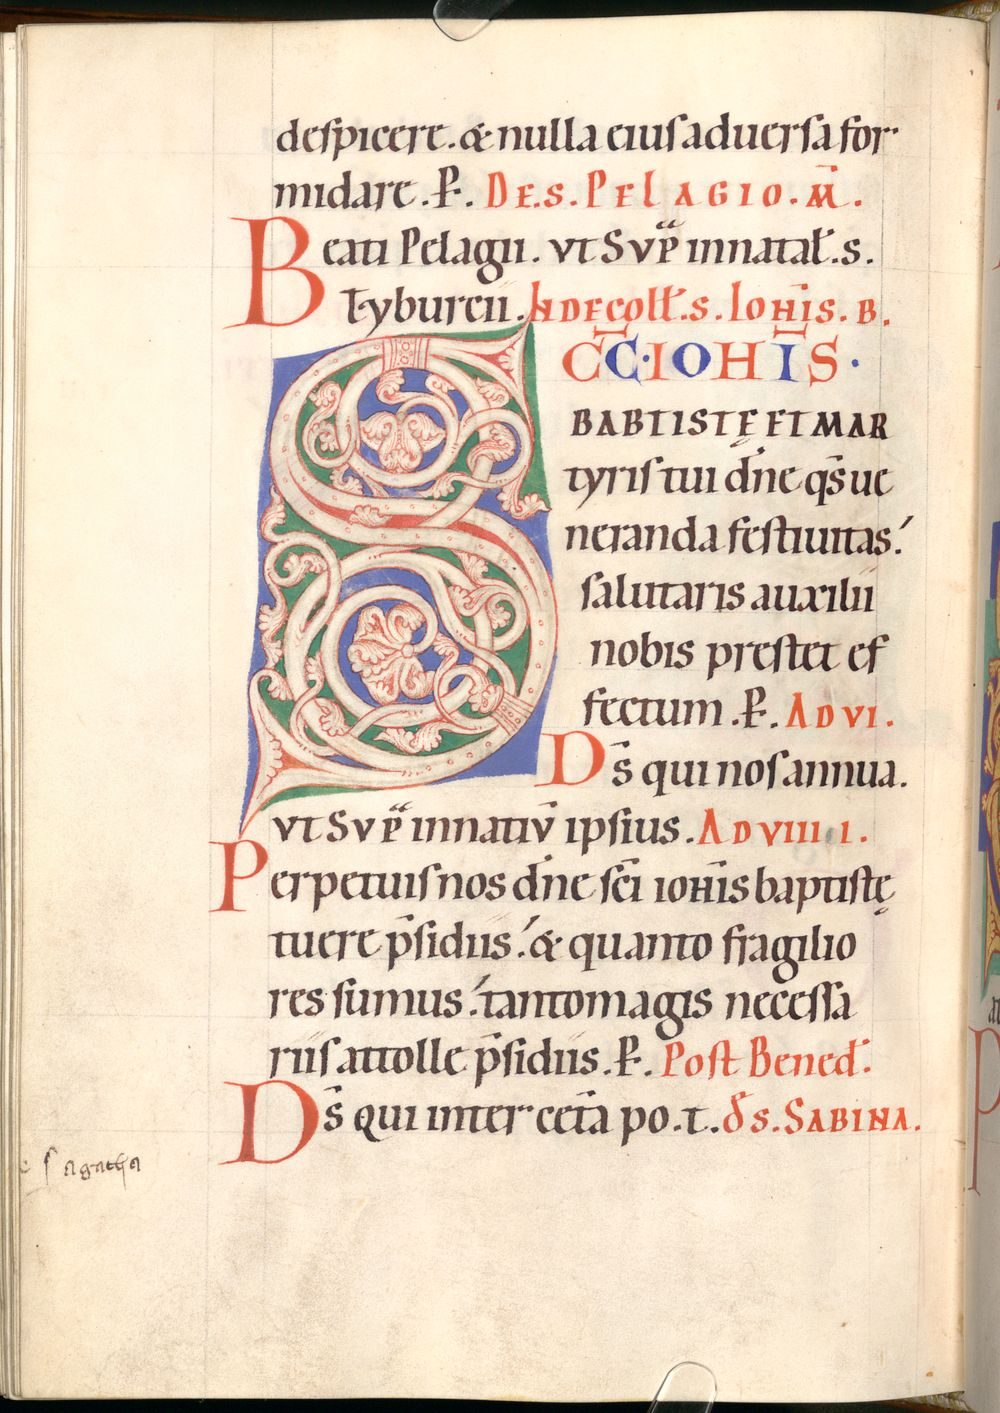 despicere. & nulla eius aduersa for
midare. P̶. DE. S. PELAGIO. M̄.
Beati Pelagii. vt Svp̄ in natal̄. s.
Tyburcii. IN DECOLL̄. S. IOHĪS. B.
SC̄C̄I IOHĪS.
BABTISTĘ ET MAR
tyris tui dn̄e qs̄ ue
neranda festiuitas.
salutaris auxilii
nobis prestet ef
fectum. P̶. AD VI.
Ds̄ qui nos annua.
vt Svp̄ in nativ̄ ipsius. AD VIIII.
Perpetuis nos dn̄e sc̄i iohīs baptistę
tuere p̄sidiis. & quanto fragilio
res sumus. tanto magis necessa
riis attolle p̄sidiis. P̶. Post Bened̄.
Ds̄ qui inter cet̄a po. t. d̄ s. SABINA.
s agatha